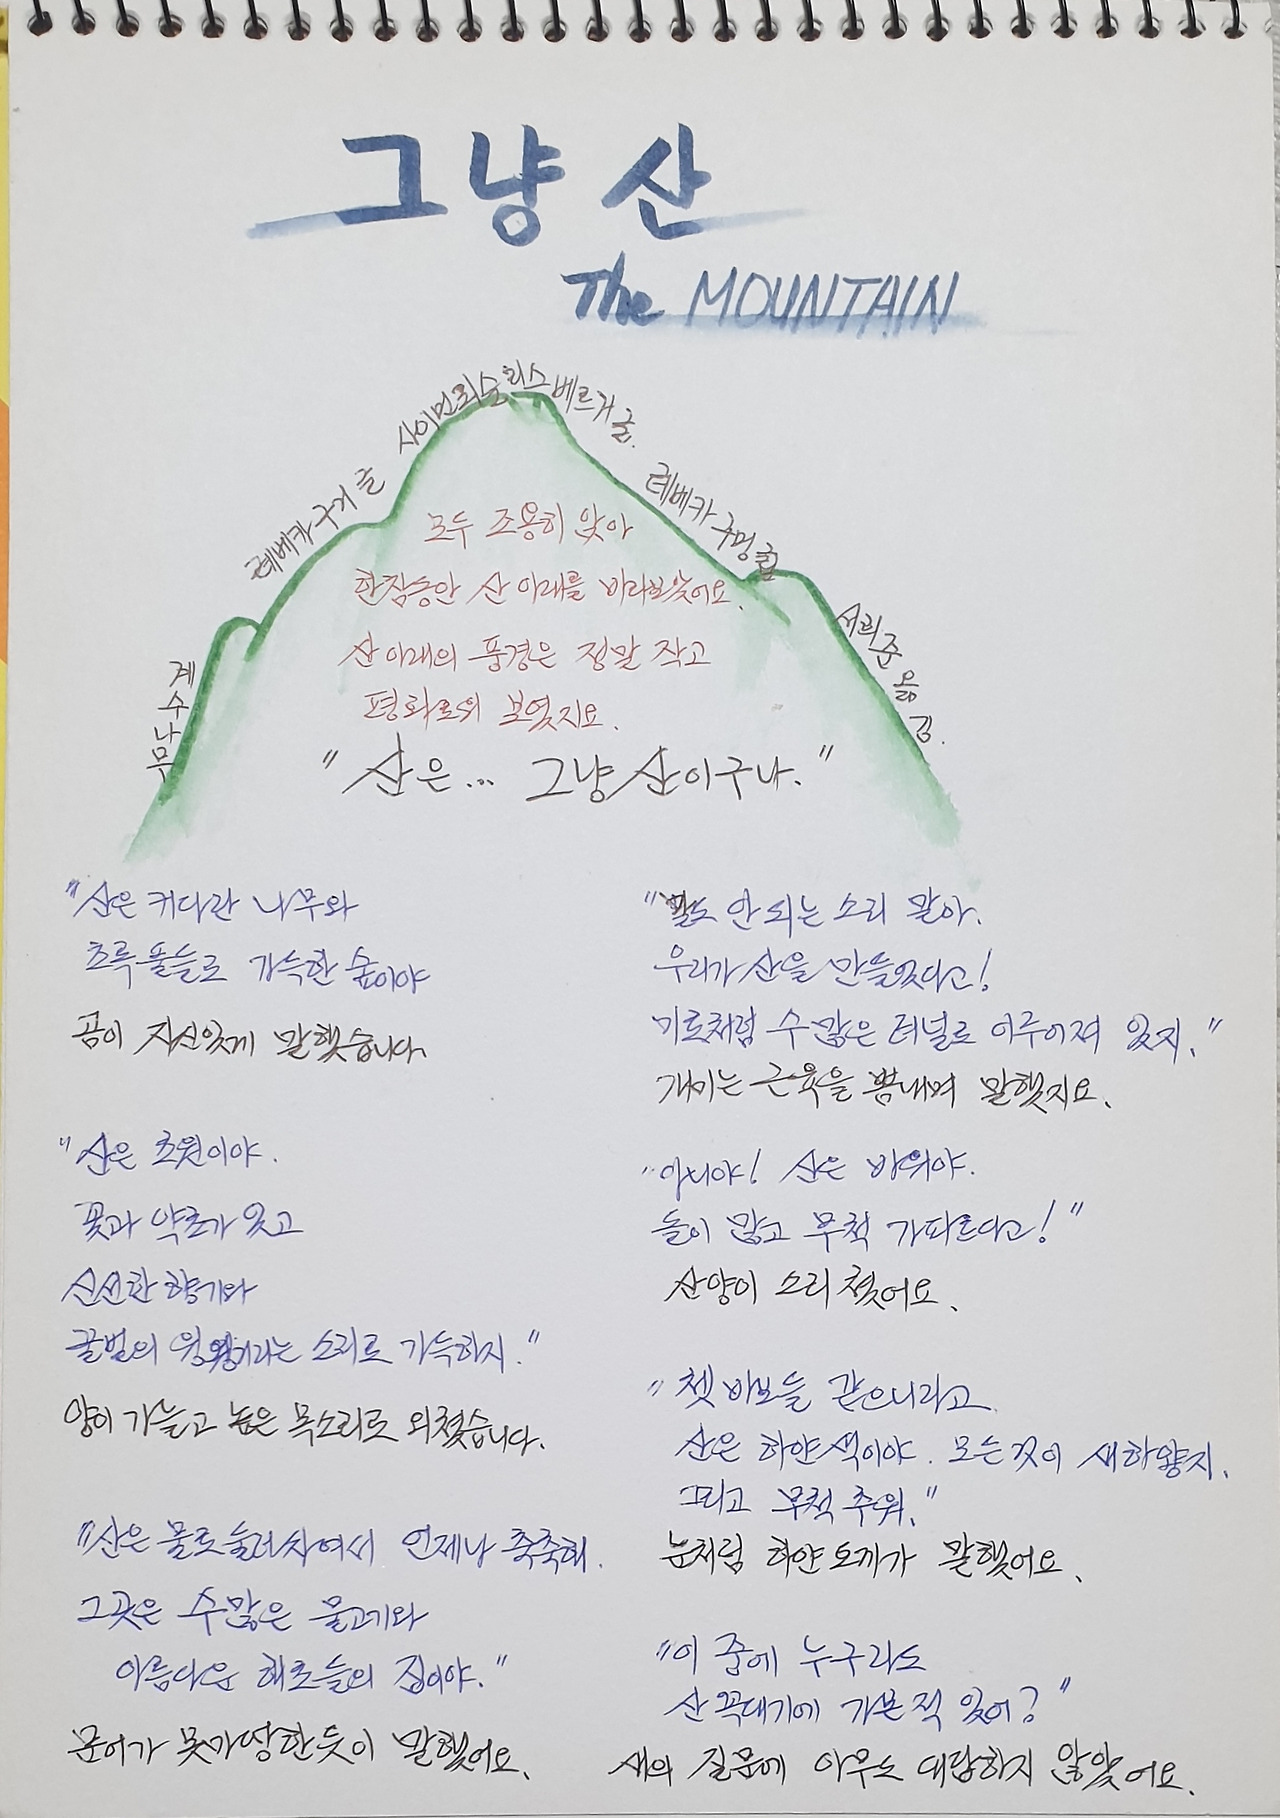 그냥 산
The MOUNTAIN
계수나무
레베카 구거 글
사이먼 뢰슬리스베르거 글.
레베카 구멍 글
서희준 옮김.
모두 조용히 앉아
한참동안 산 아래를 바라보았어요.
산 아래의 풍경은 정말 작고
평화로워 보였지요.
"산은... 그냥 산이구나."
"산은 커다란 나무와
초록 풀들로 가득한 숲이야
곰이 자신있게 말했습니다.
"산은 초원이야.
꽃과 약초가 있고
신선한 향기와
꿀벌의 윙윙거리는 소리로 가득하지."
양이 가늘고 높은 목소리로 외쳤습니다.
"산은 물로 둘러싸여서 언제나 축축해.
그곳은 수많은 물고기와
아름다운 해초들의 집이야."
문어가 못마땅한듯이 말했어요.
"말도 안 되는 소리 말아.
우리가 산을 만들었다고!
미로처럼 수많은 터널로 이루어져 있지."
개미는 근육을 뽐내며 말했지요.
"아니야! 산은 바위야.
돌이 많고 무척 가파르다고!"
산양이 소리쳤어요.
"쳇 바보들 같으니라고
산은 하얀색이야. 모든것이 새하얗지.
그리고 무척 추워."
눈처럼 하얀 토끼가 말했어요.
"이 중에 누구라도
산꼭대기에 가본 적 있어?"
새의 질문에 아무도 대답하지 않았어요.